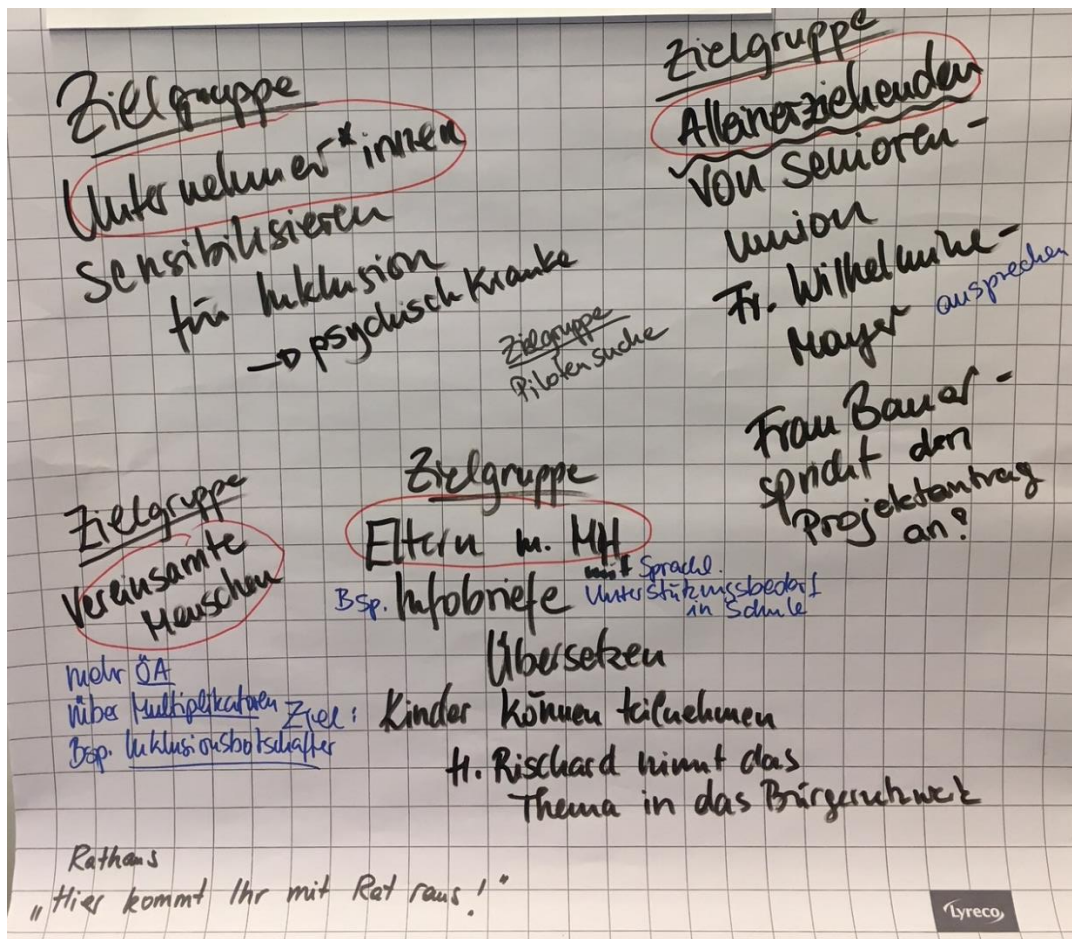 Zielgruppe
Unternehmer*innen
Sensibilisieren
für Inklusion
→ psychisch Kranke
Zielgruppe
Pilotensuche
Zielgruppe
Alleinerziehenden
von Senioren-
union
Fr. Wilhelmine-
Mayer ansprechen
Frau Bauer -
spricht den
Projektantrag
an?
Zielgruppe
Vereinsamte
Menschen
mehr ÖA
über Multiplikatoren
Bsp. Inklusionsbotschafter
Zielgruppe
Eltern m. MH
mit Sprachl.
Bsp. Infobriefe Unterstützungsbedarf
in Schule
Übersetzen
Ziel: Kinder können teilnehmen
H. Rischard nimmt das
Thema in das Bürgernetzwerk
Rathaus
„Hier kommt Ihr mit Rat raus!"
Lyreco